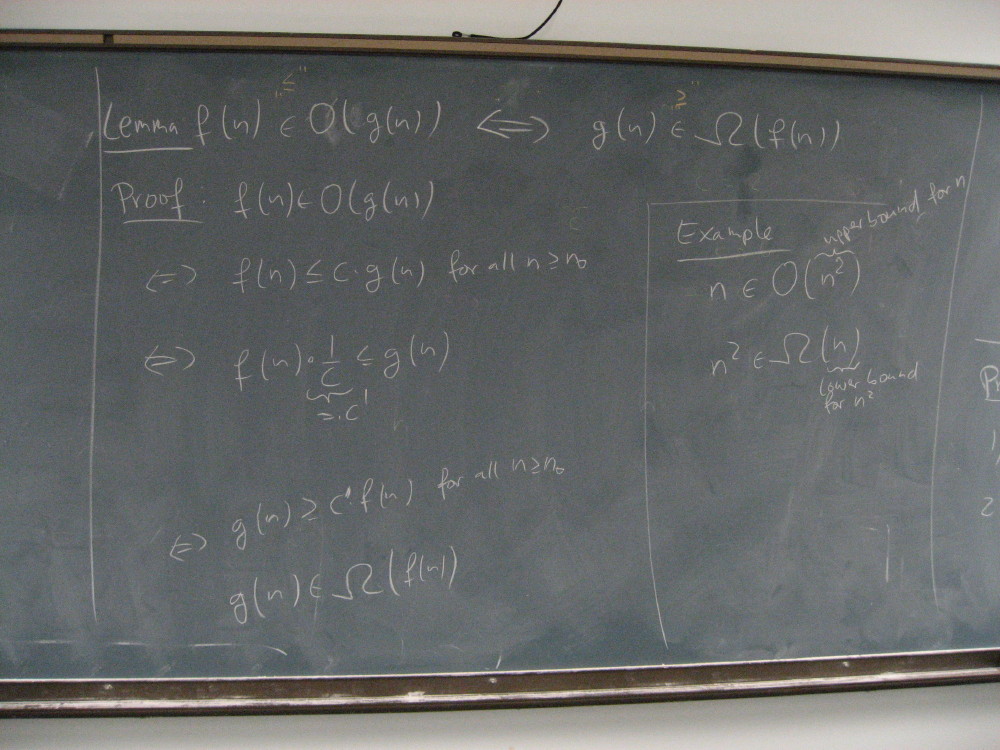 „≤“ „≥“
Lemma f(n) ∈ O(g(n)) ⟺ g(n) ∈ Ω(f(n))
Proof: f(n) ∈ O(g(n))
⟺ f(n) ≤ c·g(n) for all n ≥ n₀
⟺ f(n)·1/c ≤ g(n)
=:c'
⟺ g(n) ≥ c' f(n) for all n ≥ n₀
g(n) ∈ Ω(f(n))
Example
upper bound for n
n ∈ O(n²)
n² ∈ Ω(n)
lower bound
for n²
1,
2